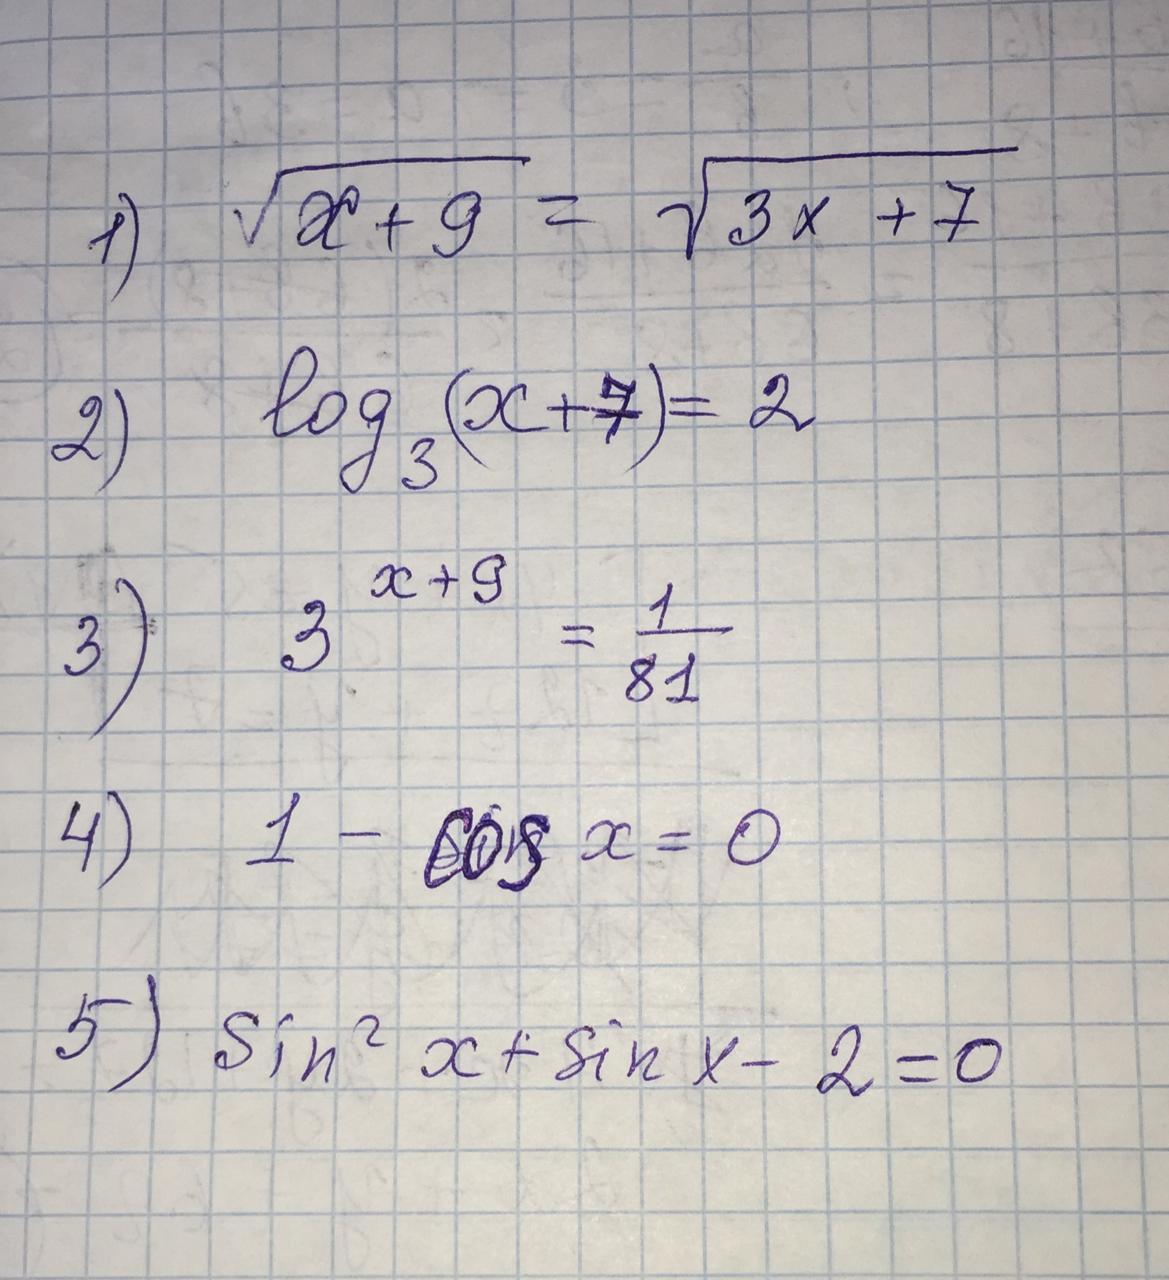 1) √x+9 = √3x+7
2) log₃(x+7) = 2
3) 3^(x+9) = 1/81
4) 1 - cos x = 0
5) sin² x + sin x - 2 = 0